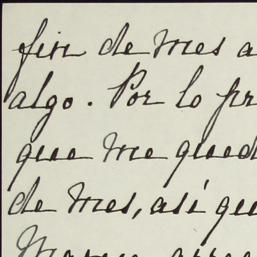 fin de mes a
algo. Por lo pr
que me qued
de mes, así que